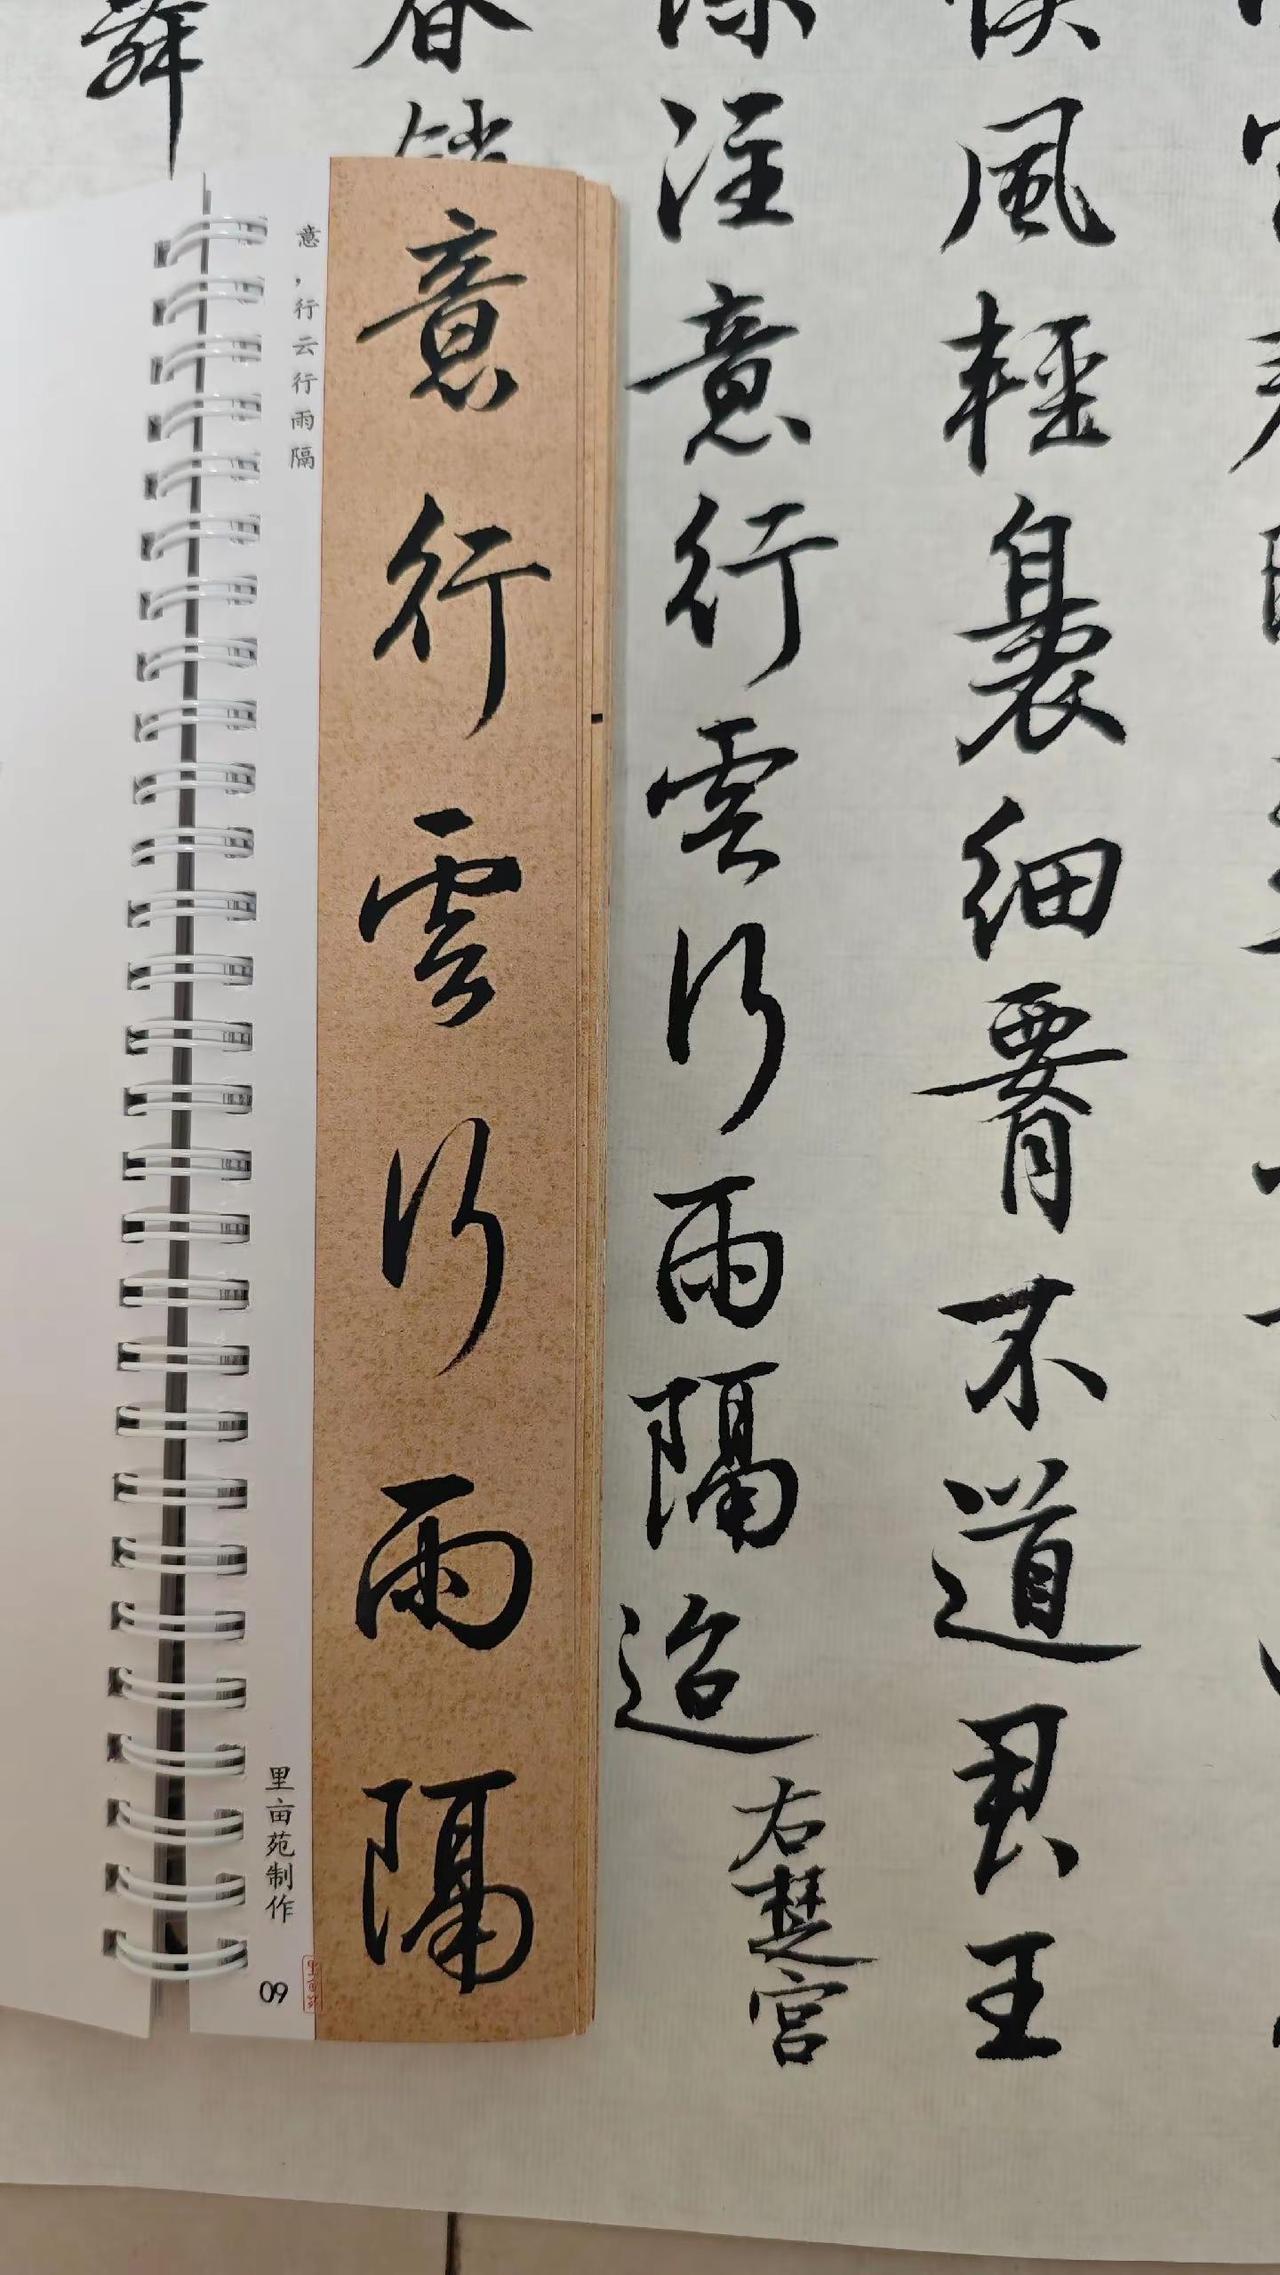 風輕裊細䏚不道君王
深注意行雲行雨隔迢
右楚宮
春
舞
意行雲行雨隔
意，行云行雨隔
里亩苑制作
09